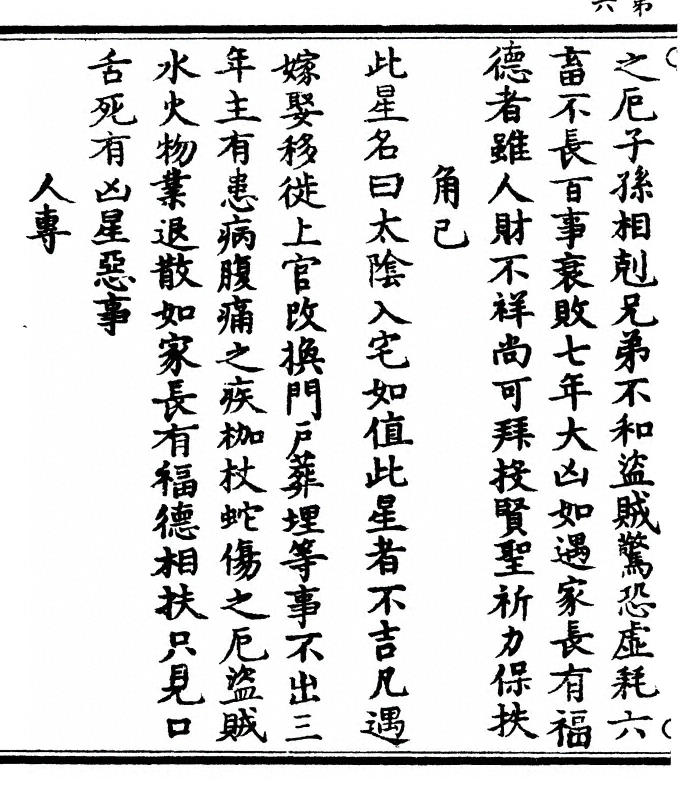 第六
之厄子孫相剋兄弟不和盜賊驚恐虛耗六
畜不長百事衰敗七年大凶如遇家長有福
德者雖人財不祥尚可拜投賢聖祈力保扶
角已
此星名曰太陰入宅如值此星者不吉凡遇
嫁娶移徙上官改換門戶葬埋等事不出三
年主有患病腹痛之疾枷杖蛇傷之厄盜賊
水火物業退散如家長有福德相扶只見口
舌死有凶星惡事
人專